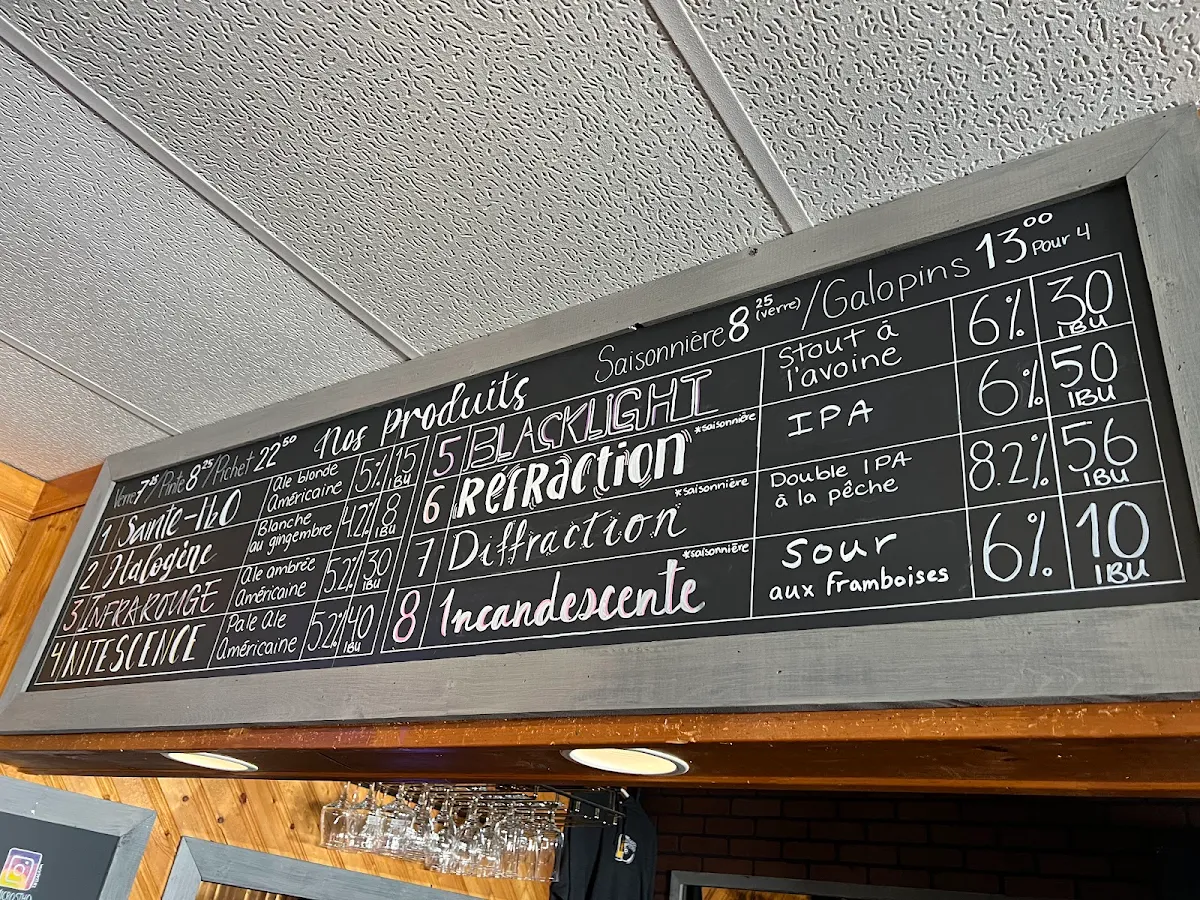 Nos produits
Verre 7 25 / Pinte 8 25 / Pichet 22 50
Saisonnière 8 25 (verre) / Galopins 13 00 Pour 4
1 Sainte-160 Ale blonde Américaine 5% 15 IBU
2 Halogène Blanche au gingembre 4.2% 8 IBU
3 INFRAROUGE Ale ambrée Américaine 5.2% 30 IBU
4 NITESCENCE Pale Ale Américaine 5.2% 40 IBU
5 BLACKLIGHT Stout à l'avoine 6% 30 IBU
6 Réfraction *saisonnière IPA 6% 50 IBU
7 Diffraction *saisonnière Double IPA à la pêche 8.2% 56 IBU
8 Incandescente *saisonnière Sour aux framboises 6% 10 IBU